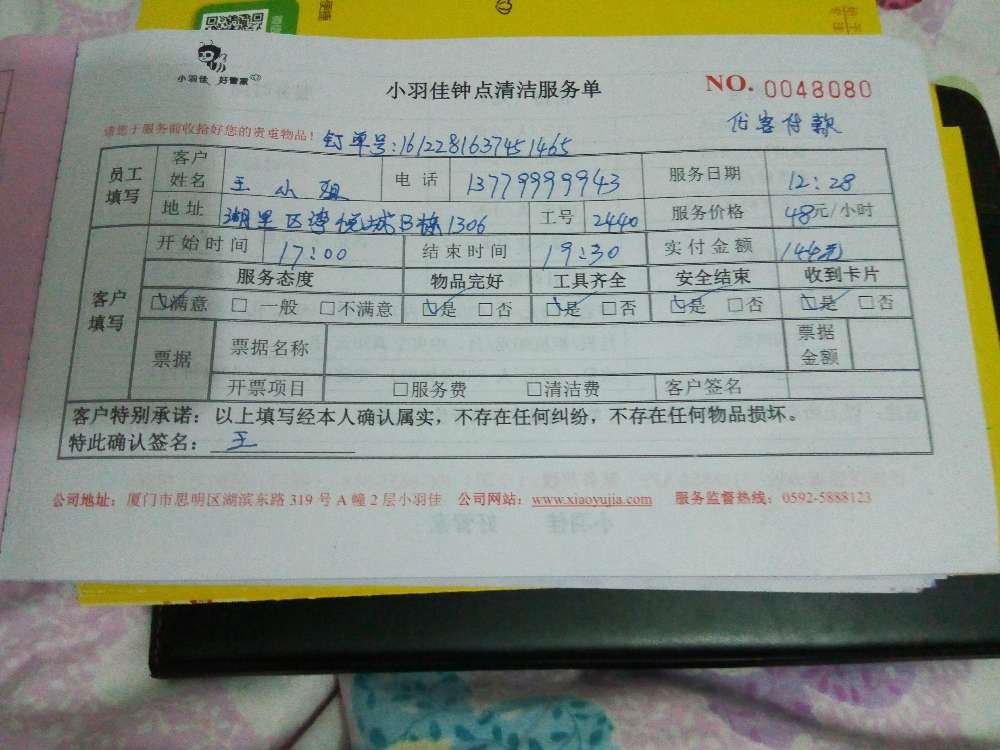 小羽佳 好管家
小羽佳钟点清洁服务单
NO. 0048080
请您于服务前收拾好您的贵重物品!
钉单号:1612281637451465
代客付款
员工填写
客户姓名 王小姐 电话 13779999943 服务日期 12:28
地址 湖里区湾悦城B栋1306 工号 2440 服务价格 48元/小时
客户填写
开始时间 17:00 结束时间 19:30 实付金额 144元
服务态度 物品完好 工具齐全 安全结束 收到卡片
☑满意 □一般 □不满意 ☑是 □否 ☑是 □否 ☑是 □否 ☑是 □否
票据 票据名称 票据金额
开票项目 □服务费 □清洁费 客户签名
客户特别承诺:以上填写经本人确认属实,不存在任何纠纷,不存在任何物品损坏。
特此确认签名: 王
公司地址:厦门市思明区湖滨东路 319 号 A 幢 2 层小羽佳 公司网站:www.xiaoyujia.com 服务监督热线:0592-5888123